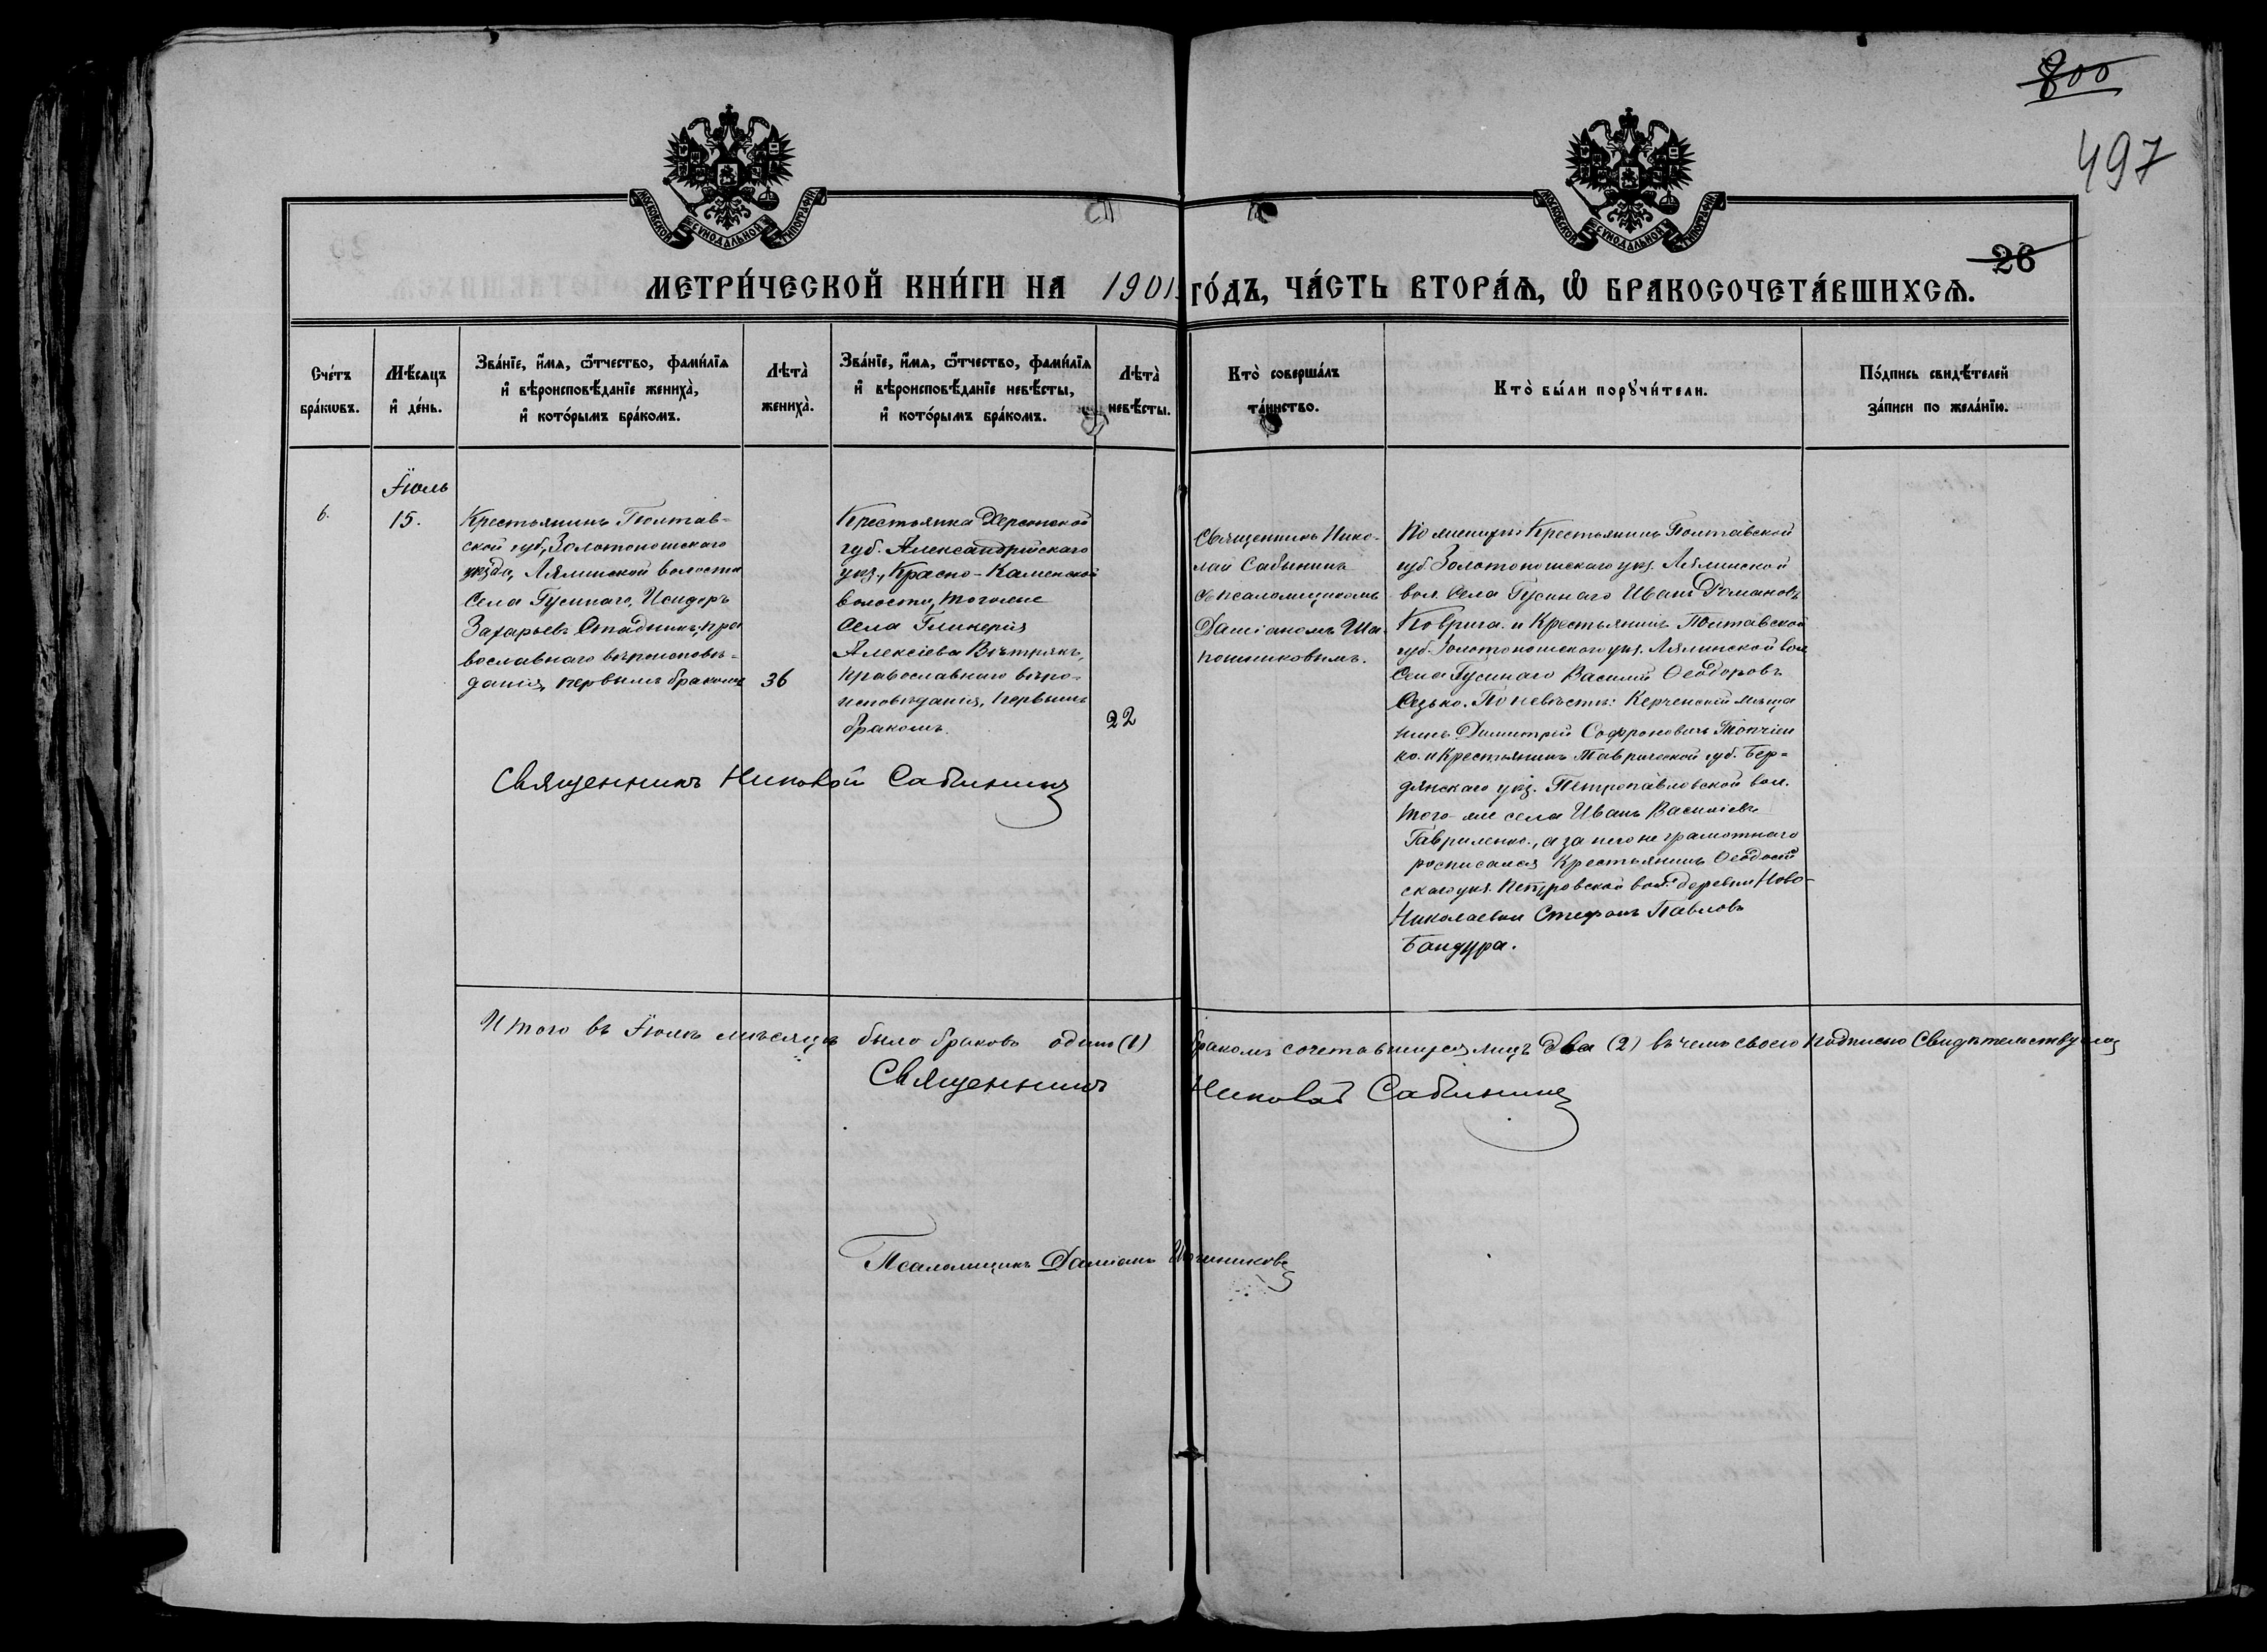 800
497
26
МОСКОВСКОЙ СѴНОДАЛЬНОЙ ТИПОГРАФІИ
МОСКОВСКОЙ СѴНОДАЛЬНОЙ ТИПОГРАФІИ
МЕТРИ́ЧЕСКОЙ КНИ́ГИ НА 1901 ГО́ДЪ, ЧА́СТЬ ВТОРА́Ѧ, Ѿ БРАКОСОЧЕТА́ВШИХСѦ.
Сче́тъ
бра́кѡвъ.
Мѣ́сѧцъ
и҆ де́нь.
Зва́нїе, и҆́мѧ, ѻ҆́тчество, фами́лїѧ
и҆ вѣроисповѣ́данїе жениха̀,
и҆ кото́рымъ бра́комъ.
Лѣта̀
жениха̀.
Зва́нїе, и҆́мѧ, ѻ҆́тчество, фами́лїѧ
и҆ вѣроисповѣ́данїе невѣ́сты,
и҆ кото́рымъ бра́комъ.
Лѣта̀
невѣ́сты.
Кто̀ соверша́лъ
та́инство.
Кто̀ бы́ли порꙋчи́тели.
По́дпись свидѣ́телей
за́писи по жела́нїю.
6.
Іюль
15.
Крестьянинъ Полтав-
ской губ., Золотоношскаго
уѣзда, Лялинской волости
села Гусинаго, Исидоръ
Захарьевъ Стадникъ, пра
вославнаго вѣроисповѣ-
данія, первымъ бракомъ
36
Крестьянка Херсонской
губ. Александрійскаго
уѣз., Красно-Каменской
волости, тогоже
села Гликерія
Алексіева Вѣтрякъ,
православнаго вѣро-
исповѣданія, первымъ
бракомъ.
22
Священникъ Нико-
лай Сабининъ
съ псаломщикомъ
Даміаномъ Ша
пошниковымъ.
По женихѣ: Крестьянинъ Полтавской
губ. Золотоношскаго уѣз. Лялинской
вол. села Гусинаго Иванъ Романовъ
Коврига. и Крестьянинъ Полтавской
губ. Золотоношскаго уѣз. Лялинской вол
села Гусинаго Василій Ѳеодоровъ
Седько. По невѣстѣ: Керченскій мѣща
нинъ Димитрій Софроновичъ Топчіен
ко. и Крестьянинъ Таврической губ. Бер-
дянскаго уѣз. Петропавловской вол.
того-же села Иванъ Василіевъ
Гавриленко, а за него не грамотнаго
росписался Крестьянинъ Ѳеодосій
скаго уѣз. Петровской вол. деревни Ново-
Николаевки Стефанъ Павловъ
Бандура.
Священникъ Николай Сабининъ
Итого въ Іюлѣ мѣсяцѣ было браковъ одинъ (1) бракомъ сочетавшихся лицъ два (2) въ чемъ своею подписью Свидѣтельствуемъ
Священникъ Николай Сабининъ
Псаломщикъ Даміанъ Шапошниковъ